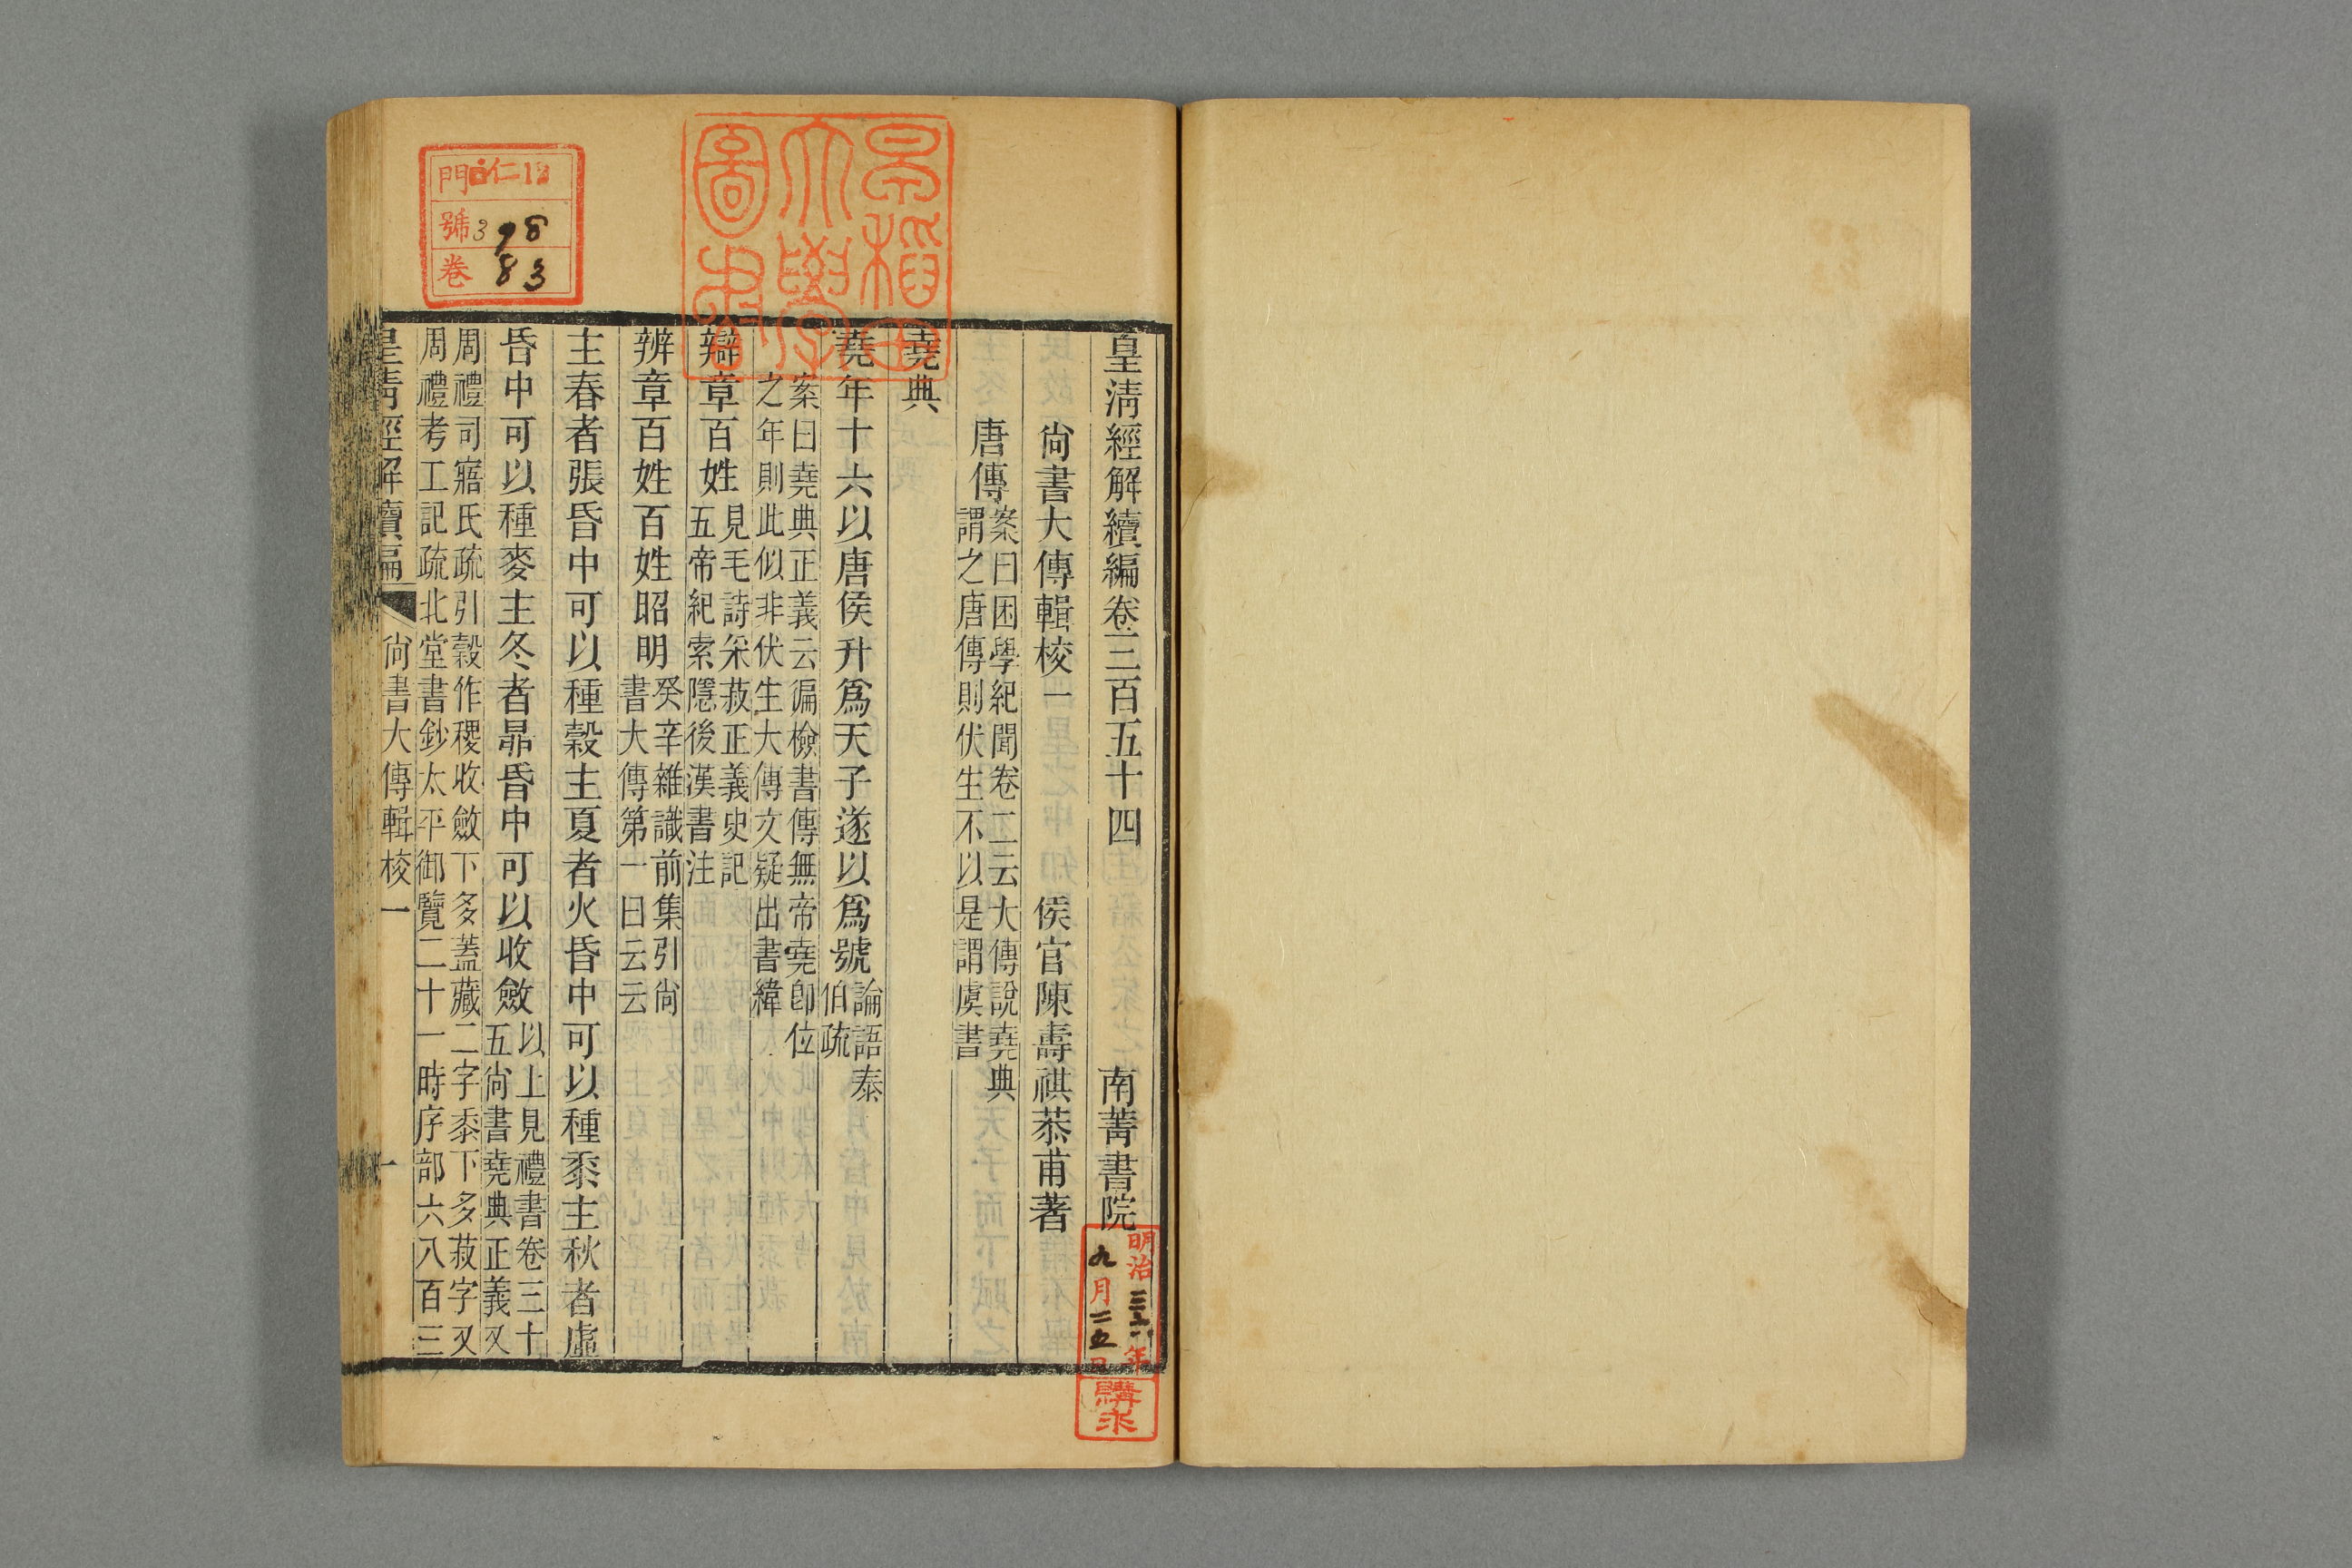 皇清經解續編卷三百五十四 南菁書院
尙書大傳輯校一 侯官陳壽祺恭甫著
唐傳案曰困學紀聞卷二云大傳說堯典
謂之唐傳則伏生不以是謂虞書
堯典
堯年十六以唐侯升爲天子遂以爲號論語泰
伯疏
案曰堯典正義云徧檢書傳無帝堯卽位
之年則此似非伏生大傳文疑出書緯
辯章百姓見毛詩采菽正義史記
五帝紀索隱後漢書注
辨章百姓百姓昭明癸辛雜識前集引尙
書大傳第一曰云云
主春者張昏中可以種穀主夏者火昏中可以種黍主秋者虛
昏中可以種麥主冬者昴昏中可以收斂以上見禮書卷三十
五尙書堯典正義又
周禮司寤氏疏引穀作稷收斂下多蓋藏二字黍下多菽字又
周禮考工記疏北堂書鈔太平御覽二十一時序部六八百三
皇清經解續編 尙書大傳輯校一 一
早稻田
大學
圖書
門
號 398
卷 83
明治三六年
九月二五日
購求